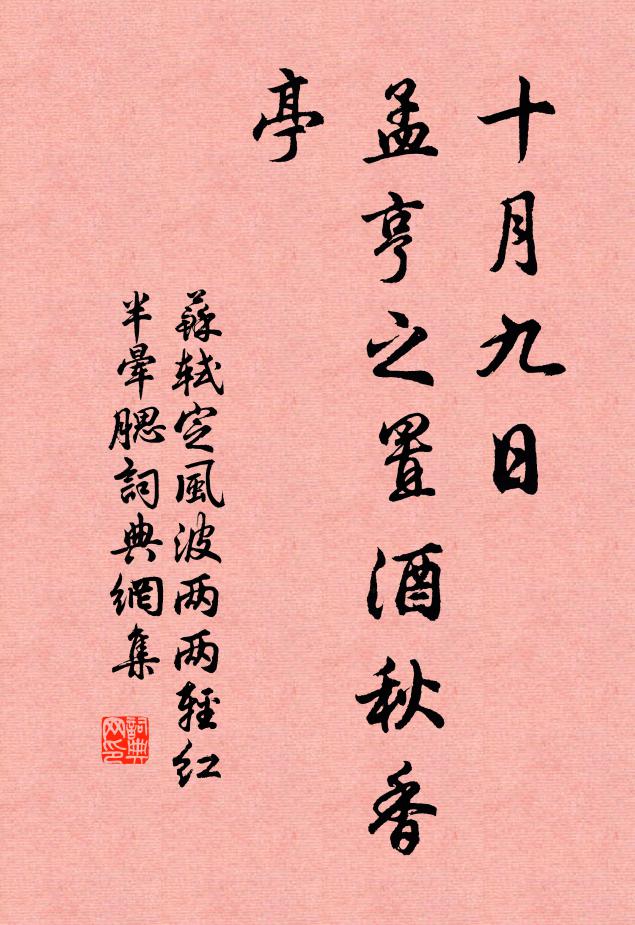 十月九日
孟亨之置酒秋香
亭
蘇軾定風波两两輕红
半暈腮詞典網集
詞典
网印